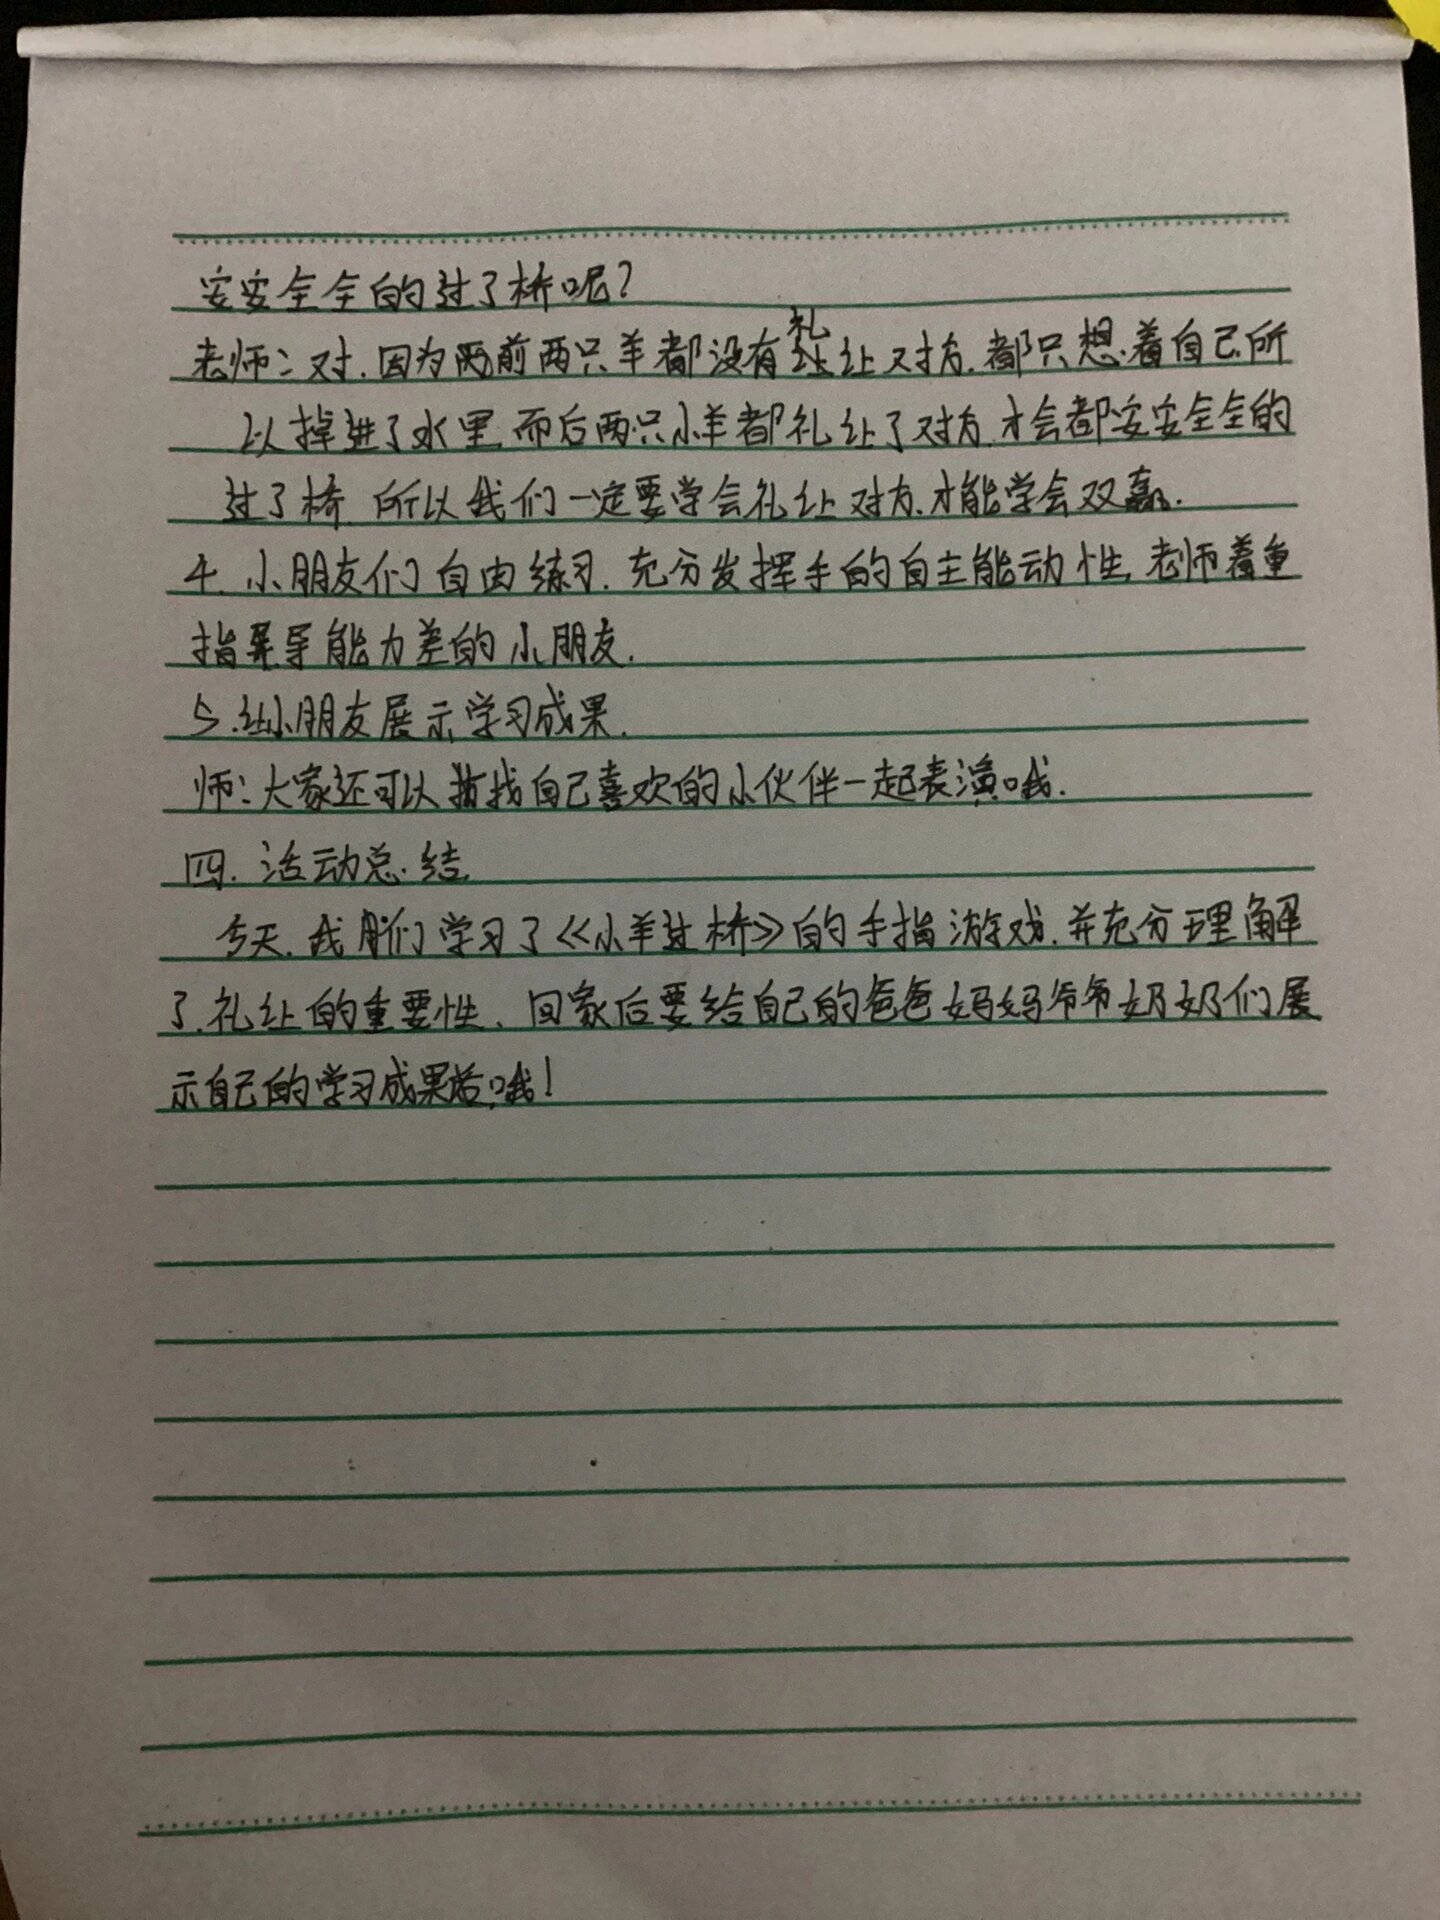 安安全全的过了桥呢？
老师：对.因为两前两只羊都没有礼让对方.都只想着自己所
以掉进了水里.而后两只小羊都礼让了对方.才会都安安全全的
过了桥.所以我们一定要学会礼让对方.才能学会双赢.
4.小朋友们自由练习.充分发挥手的自主能动性.老师着重
指导能力差的小朋友.
5.让小朋友展示学习成果.
师：大家还可以找自己喜欢的小伙伴一起表演哦.
四.活动总结
今天.我们学习了《小羊过桥》的手指游戏.并充分理解
了.礼让的重要性、回家后要给自己的爸爸妈妈爷爷奶奶们展
示自己的学习成果哦！